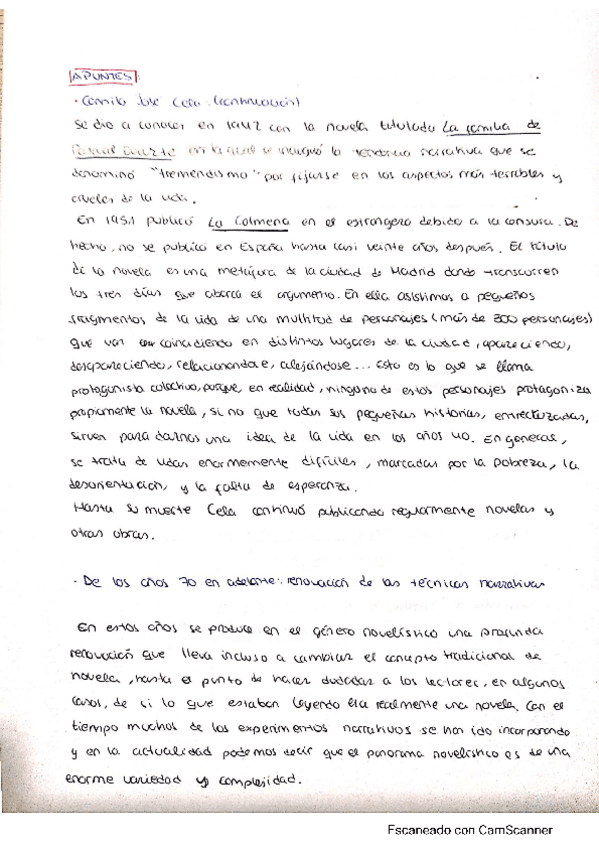 APUNTES
· Camilo José Cela (continuación)
Se dio a conocer en 1942 con la novela titulada La familia de
Pascual Duarte en la qual se inauguró la tendencia narrativa que se
denominó "tremendismo" por fijarse en los aspectos más terribles y
crueles de la vida.
En 1951 publicó La Colmena en el estrangero debido a la censura. De
hecho, no se publicó en España hasta casi veinte años después. El título
de la novela es una metáfora de la ciudad de Madrid donde transcurren
los tres días que abarca el argumento. En ella asistimos a pequeños
fragmentos de la vida de una multitud de personajes (más de 300 personajes)
que van coincidiendo en distintos lugares de la ciudad, apareciendo,
desapareciendo, relacionandose, alejándose... esto es lo que se llama
protagonista colectivo, porque, en realidad, ninguno de estos personajes protagoniza
propiamente la novela, si no que todas sus pequeñas historias, entrecruzadas,
sirven para darnos una idea de la vida en los años 40. En general,
se trata de vidas enormemente difíciles, marcadas por la pobreza, la
desorientación, y la falta de esperanza.
Hasta su muerte Cela continuó publicando regularmente novelas y
otras obras.
· De los años 70 en adelante: renovación de las técnicas narrativas
En estos años se produce en el género novelístico una profunda
renovación que lleva incluso a cambiar el concepto tradicional de
novela, hasta el punto de hacer dudadas a los lectores, en algunos
casos, de si lo que estaban leyendo era realmente una novela. Con el
tiempo muchos de los experimentos narrativos se han ido incorporando
y en la actualidad podemos decir que el panorama novelístico es de una
enorme variedad y complejidad.
Escaneado con CamScanner